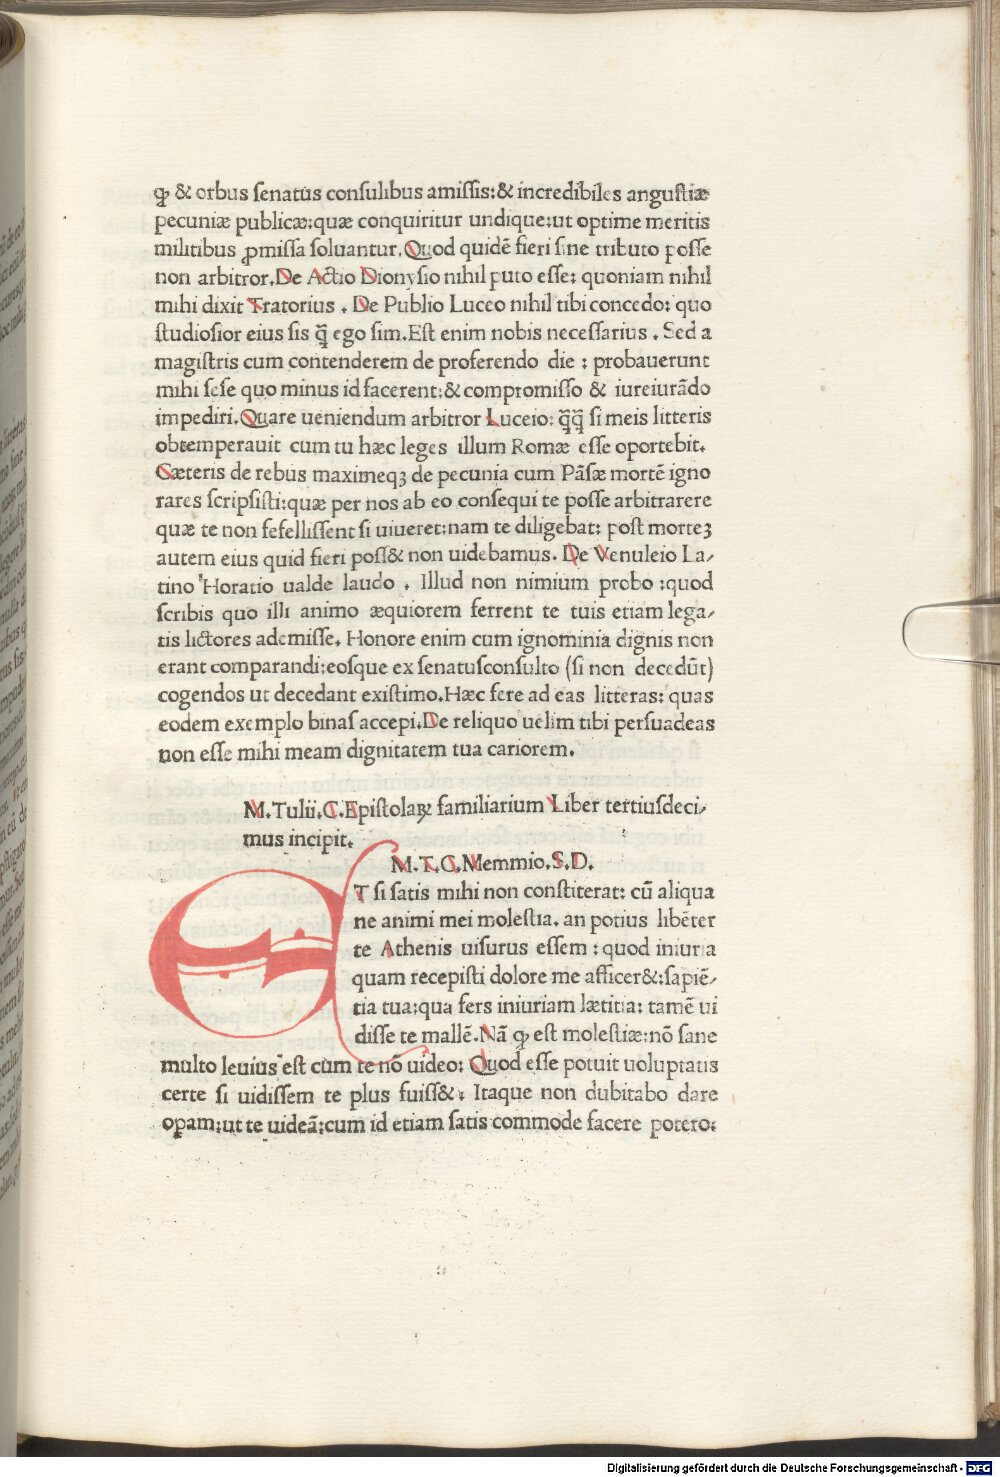 ꝙ & orbus senatus consulibus amissis:& incredibiles angustiæ
pecuniæ publicæ:quæ conquiritur undique:ut optime meritis
militibus ꝓmissa soluantur. Quod quidē fieri sine tributo posse
non arbitror. De Actio Dionysio nihil puto esse: quoniam nihil
mihi dixit Tratorius . De Publio Lucceo nihil tibi concedo: quo
studiosior eius sis q̄ ego sim. Est enim nobis necessarius . Sed a
magistris cum contenderem de proferendo die : probauerunt
mihi sese quo minus id facerent:& compromisso & iureiurādo
impediri. Quare ueniendum arbitror Luceio: q̄q̄ si meis litteris
obtemperauit cum tu hæc leges illum Romæ esse oportebit.
Cæteris de rebus maximeqꝫ de pecunia cum Pāsæ mortē igno
rares scripsisti:quæ per nos ab eo consequi te posse arbitrarere
quæ te non fefellissent si uiueret:nam te diligebat: post morteꝫ
autem eius quid fieri poss& non uidebamus. De Venuleio La-
tino Horatio ualde laudo . Illud non nimium probo :quod
scribis quo illi animo æquiorem ferrent te tuis etiam lega-
tis lictores ademisse. Honore enim cum ignominia dignis non
erant comparandi:eosque ex senatusconsulto (si non decedūt)
cogendos ut decedant existimo. Hæc fere ad eas litteras: quas
eodem exemplo binas accepi. De reliquo uelim tibi persuadeas
non esse mihi meam dignitatem tua cariorem.
M. Tulii. C. Epistolaꝝ familiarium Liber tertiusdeci-
mus incipit.
M. T. C. Memmio. S. D.
ET si satis mihi non constiterat: cū aliqua
ne animi mei molestia. an potius libēter
te Athenis uisurus essem : quod iniuria
quam recepisti dolore me afficer&:sapiē-
tia tua:qua fers iniuriam lætitia: tamē ui
disse te mallē. Nā ꝙ est molestiæ:nō sane
multo leuius est cum te nō uideo: Quod esse potuit uoluptatis
certe si uidissem te plus fuiss&: Itaque non dubitabo dare
opam:ut te uideā:cum id etiam satis commode facere potero:
Digitalisierung gefördert durch die Deutsche Forschungsgemeinschaft - DFG